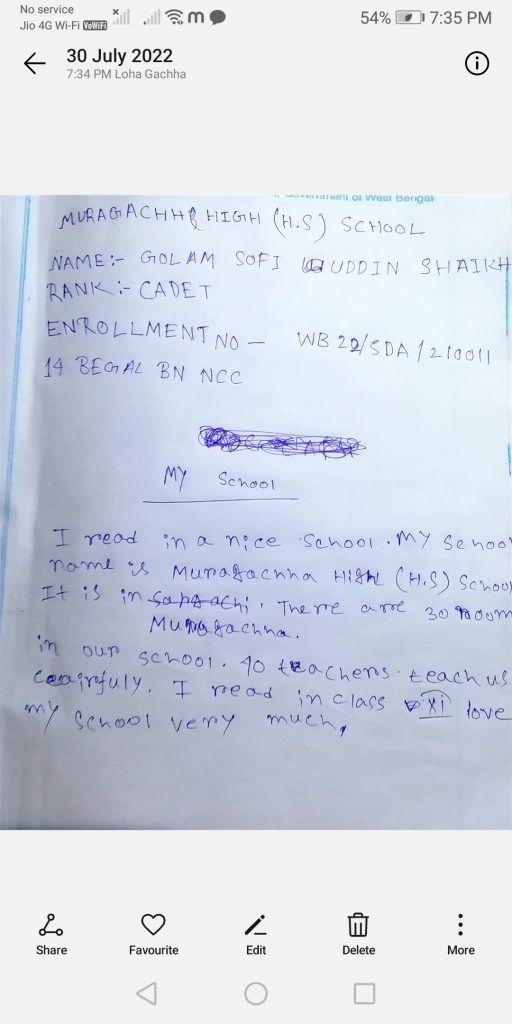 No service
Jio 4G Wi-Fi VoWiFi
54% 7:35 PM
30 July 2022
7:34 PM Loha Gachha
Government of West Bengal
MURAGACHHA HIGH (H.S) SCHOOL
NAME:- GOLAM SOFI UDDIN SHAIKH
RANK:- CADET
ENROLLMENT NO - WB 22/SDA/210011
14 BEGAL BN NCC
MY School
I read in a nice school. My School
name is Muragachha High (H.S) School
It is in Sargachi. There are 30 room
Muragachha.
in our school. 40 teachers teach us
ceairfuly. I read in class XI love
my School very much,
Share
Favourite
Edit
Delete
More